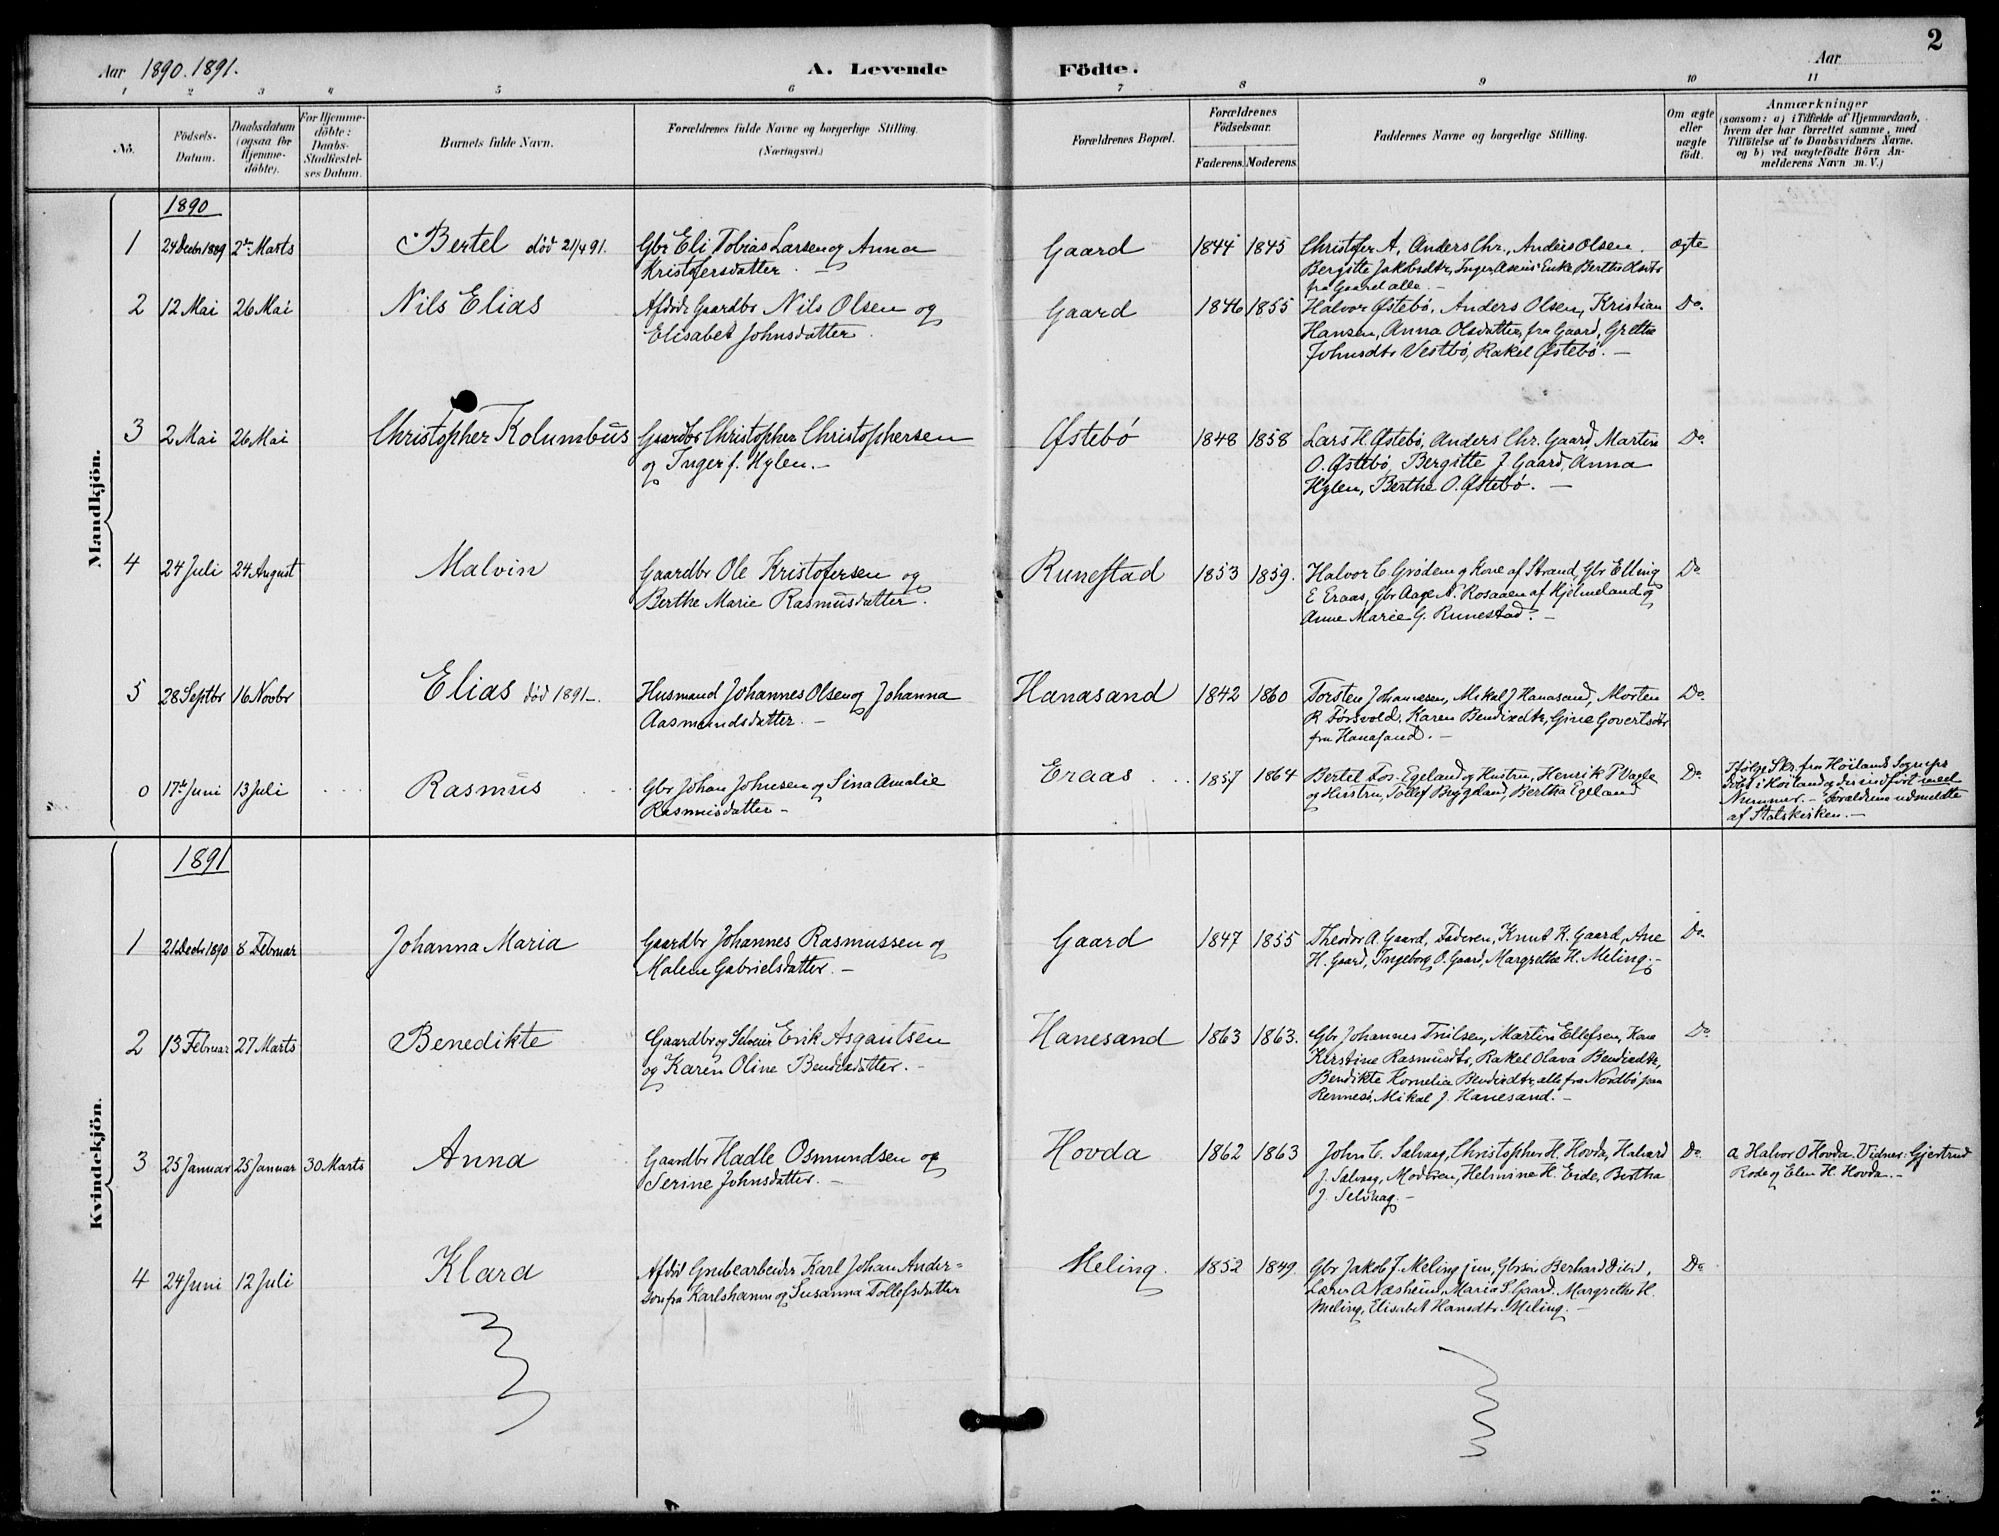 2
Aar 1890. 1891.
A. Levende Födte.
Aar
1 2 3 4 5 6 7 8 9 10 11
No.
Födsels-Datum.
Daabsdatum (ogsaa for Hjemme-döbte).
For Hjemme-döbte: Daabs-Stadfæstel-ses Datum.
Barnets fulde Navn.
Forældrenes fulde Navne og borgerlige Stilling.
(Næringsvei.)
Forældrenes Bopæl.
Forældrenes Födselsaar.
Faderens. Moderens.
Faddernes Navne og borgerlige Stilling.
Om ægte eller uægte födt.
Anmærkninger
(saasom: a) i Tilfælde af Hjemmedaab,
hvem der har forrettet samme, med
Tilföielse af to Daabsvidners Navne.
og b) ved uægtefödte Börn An-
melderens Navn m. V.)
Mandkjön.
1890
1 24 Decbr 1889 2den Marts Bertel död 21/4 91. Gbr Eli Tobias Larsen og Anna
Kristofersdatter. Gaard 1844 1845 Christofer A, Anders Chr., Anders Olsen. ægte
Bergitte Jakobsdtr, Inger Enke Berthe Olsdtr
fra Gaard alle. –
2 12 Mai 26 Mai Nils Elias Afdöde Gaardbr Nils Olsen og
Elisabet Johnsdatter. Gaard 1846 1855 Halvor Østebø, Anders Olsen, Kristian Do.
Hansen, Anna Olsdatter, fra Gaard, Grethe
Johnsdtr Vestbø, Rakel Østebø. –
3 2 Mai 26 Mai Christopher Kolumbus Gaardbr Christopher Christophersen
og Inger f. Hylen. – Østebö 1848 1858 Lars H. Østebø, Anders Chr. Gaard, Martin Do.
O. Østebø, Bergitte J Gaard, Anna
Hylen, Berthe O. Østebø. –
4 24 Juli 24 August Malvin Gaardbr Ole Kristofersen og
Berthe Marie Rasmusdatter. Runestad 1853 1859. Halvor C. Grødem og Kone af Strand, Gbr Elling Do
E Eraas, Gbr Aage N. Rosaaen af Hjelmeland og
Anne Marie G. Runestad. –
5 28 Septbr 16 Novbr Elias död 1891. Husmand Johannes Olsen og Johanna
Aasmundsdatter. – Hanasand 1842 1860 Torsten Johannesen, Mikal J Hanasand, Morten Do.
R Førsvold, Karen Bendixdtr, Gine Govertsdtr
fra Hanasand. –
0 17de Juni 13 Juli Rasmus Gbr Johan Johnsen og Sina Amalie
Rasmusdatter – Eraas 1857 1864 Bertel Tor. Egeland og Hustru, Henrik P Vagle Do
og Hustru, Tollef Bryggland, Bertha Egeland
Ifølge Skr. fra Høilands Sogneps
døbt i Høiland og der indført med
Nummer. – Forældrene udmeldte
af Statskirken. –
Kvindekjön.
1891
1 21 Decbr 1890 8 Februar Johanna Maria Gaardbr Johannes Rasmussen og
Malene Gabrielsdatter. – Gaard 1847 1855 Theodor A. Gaard, Faderen, Knut R. Gaard, Ane Do.
H. Gaard, Ingeborg O. Gaard, Margrethe H. Meling. –
2 13 Februar 27 Marts Benedikte Gaardbr og Selveier Erik Asgautsen
og Karen Oline Bendixdatter. – Hanesand 1863 1863. Gbr Johannes Truls­en, Martin Ellefsen, Kone Do.
Kirstine Rasmusdtr, Rakel Olava Bendixdtr,
Bendikte Kornelia Bendixdtr, alle fra Nordbø paa
Rennesø, Mikal J. Hanesand. –
3 25 Januar 25 Januar 30 Marts Anna Gaardbr Hadle Osmundsen og
Serine Johnsdatter. – Hovda 1862 1863 John C. Salvaag, Christopher H. Hovda, Halvard Do.
J. Salvaag, Moderen, Helmine H. Eide, Bertha
J. Selvaag. –
a Halvor O Hovda. Vidner: Gjertrud
Rode og Elen H. Hovda. –
4 24 Juni 12 Juli Klara Afdöd Grubearbeider Karl Johan Ander-
son fra Karlshamn og Susanna Tollefsdatter Meling. 1852 1849. Gbr Jakob J. Meling jun, Gbrsøn Berhard Ditsd, Do
Lærer A Næsheim, Maria S. Gaard. Margrethe H.
Meling, Elisabet Hansdtr. Meling. –